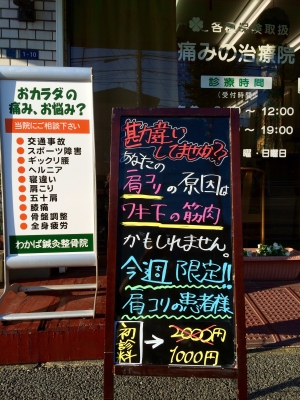 各種保険取扱
痛みの治療院
診療時間
(受付時間)
12:00
19:00
日・曜日
1-10
おカラダの
痛み、お悩み?
当院にご相談下さい
交通事故
スポーツ障害
ギックリ腰
ヘルニア
寝違い
肩こり
五十肩
膝痛
骨盤調整
全身疲労
わかば鍼灸整骨院
勘違い
してませんか??
あなたの
肩コリの原因は
ワキ下の筋肉
かもしれません。
今週限定!!
肩コリの患者様
初診料→2000円
1000円